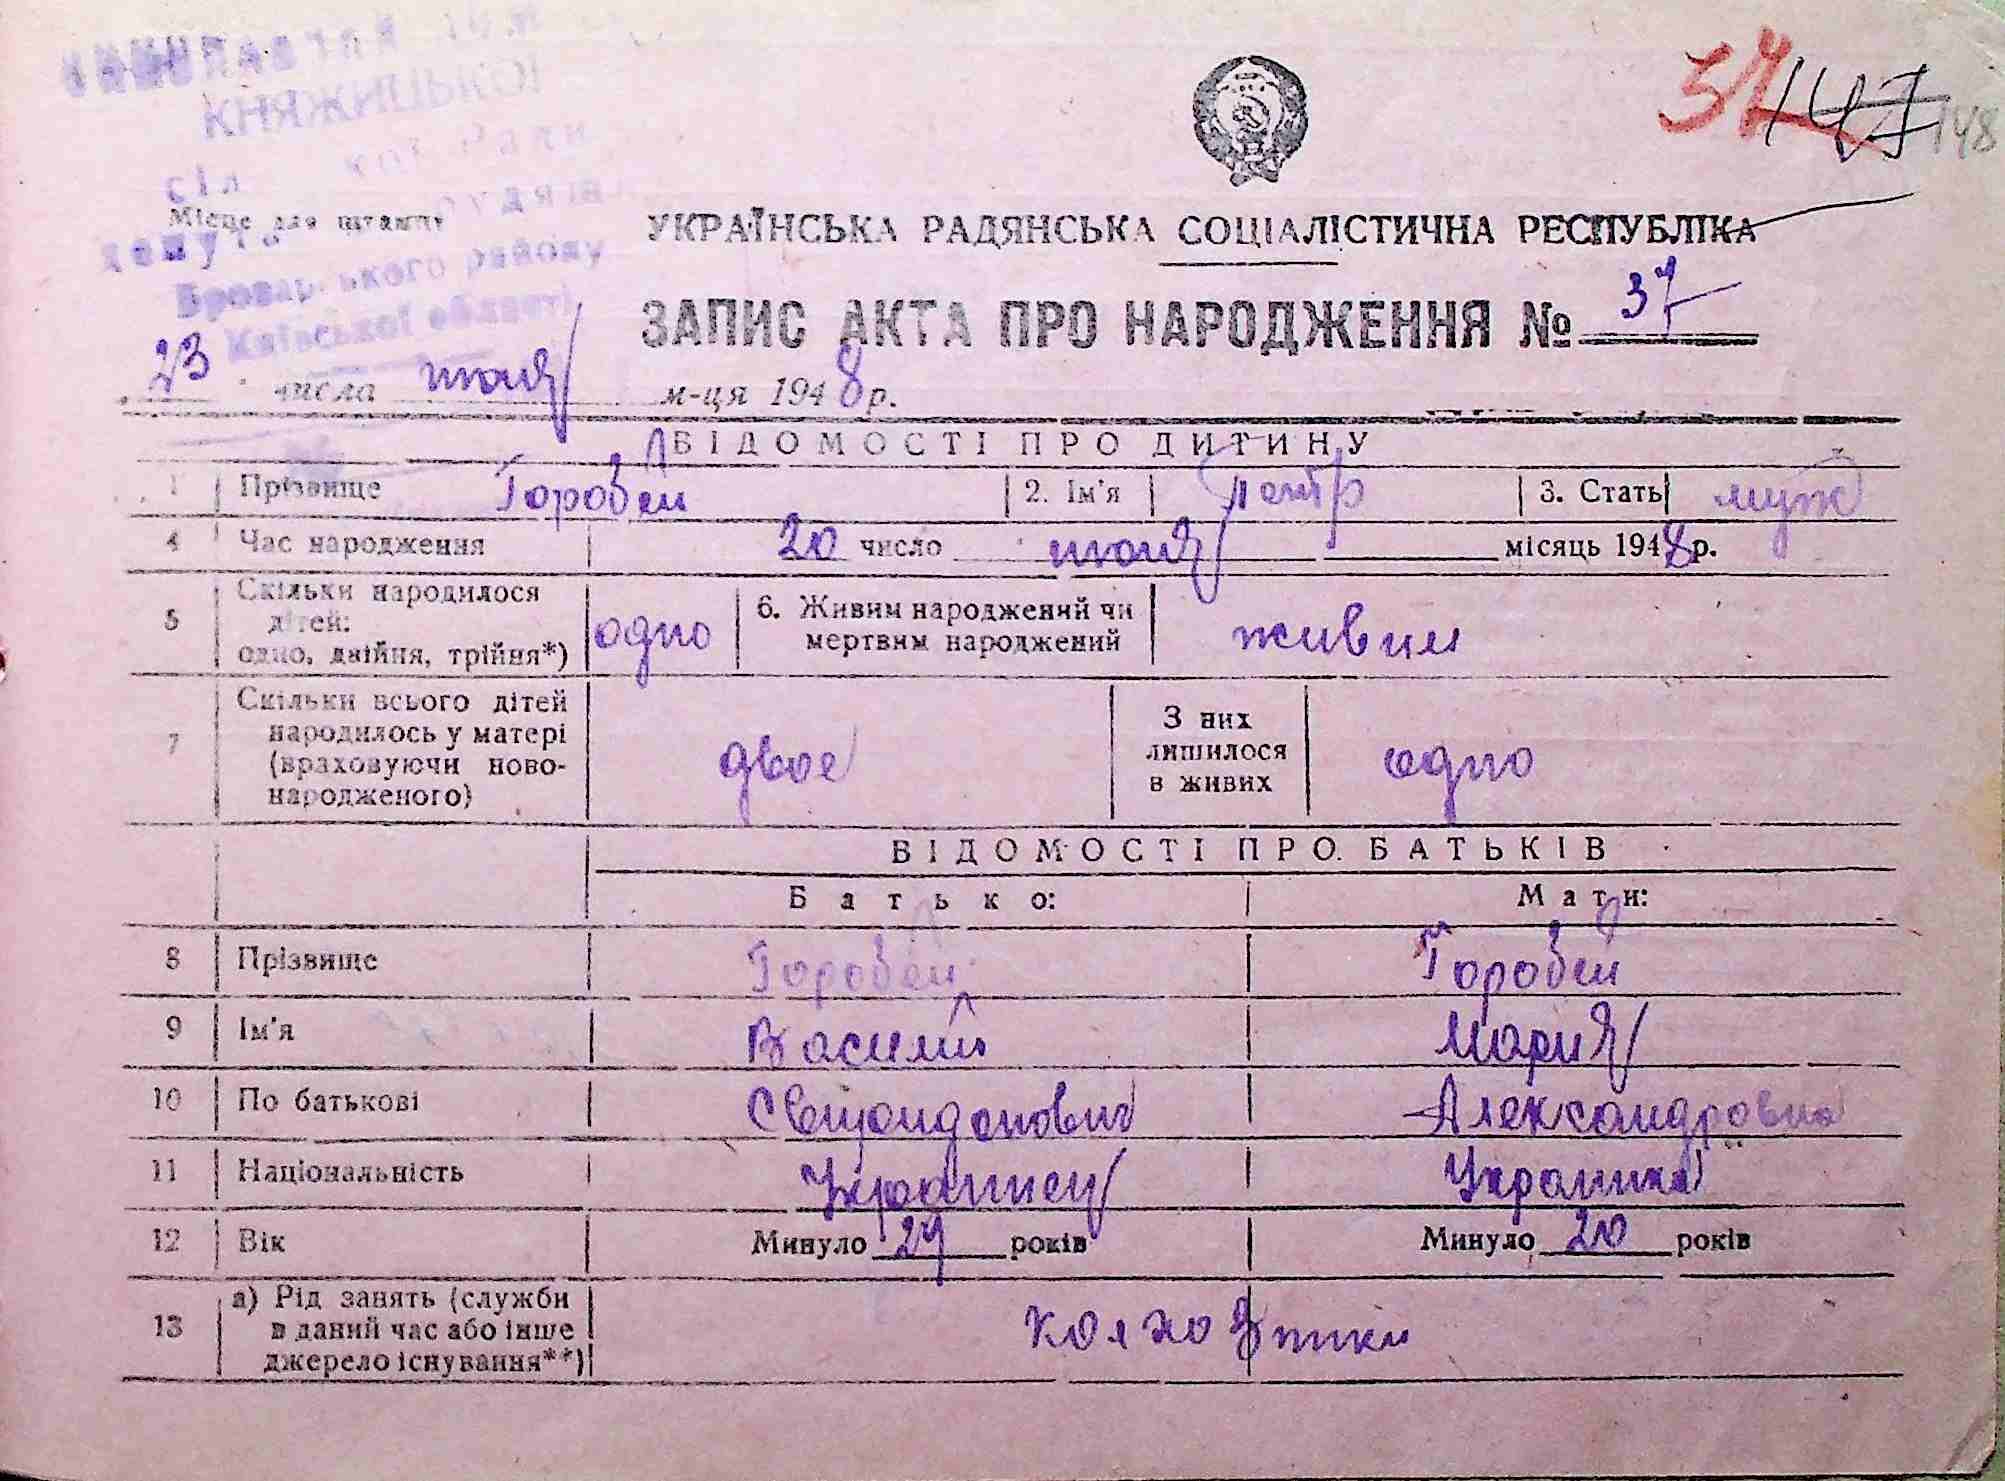 КНЯЖИЦЬКОЇ
сіл кої Ради
Місце для штампу
Броварського району
Київської області
37 147 148
УКРАЇНСЬКА РАДЯНСЬКА СОЦІАЛІСТИЧНА РЕСПУБЛІКА
ЗАПИС АКТА ПРО НАРОДЖЕННЯ № 37
23 числа июня м-ця 1948 р.
ВІДОМОСТІ ПРО ДИТИНУ
1 Прізвище Горобей 2. Ім'я Петр 3. Стать муж
4 Час народження 20 число июня місяць 1948 р.
5 Скільки народилося
дітей:
одно, двійня, трійня*) одно 6. Живим народжений чи
мертвим народжений живим
7 Скільки всього дітей
народилось у матері
(враховуючи ново-
народженого) двое З них
лишилося
в живих одно
ВІДОМОСТІ ПРО БАТЬКІВ
Батько: Мати:
8 Прізвище Горобей Горобей
9 Ім'я Василий Мария
10 По батькові Александровна
11 Національність Украинец Украинка
12 Вік Минуло 29 років Минуло 20 років
13 а) Рід занять (служби
в даний час або інше
джерело існування**) колхозники